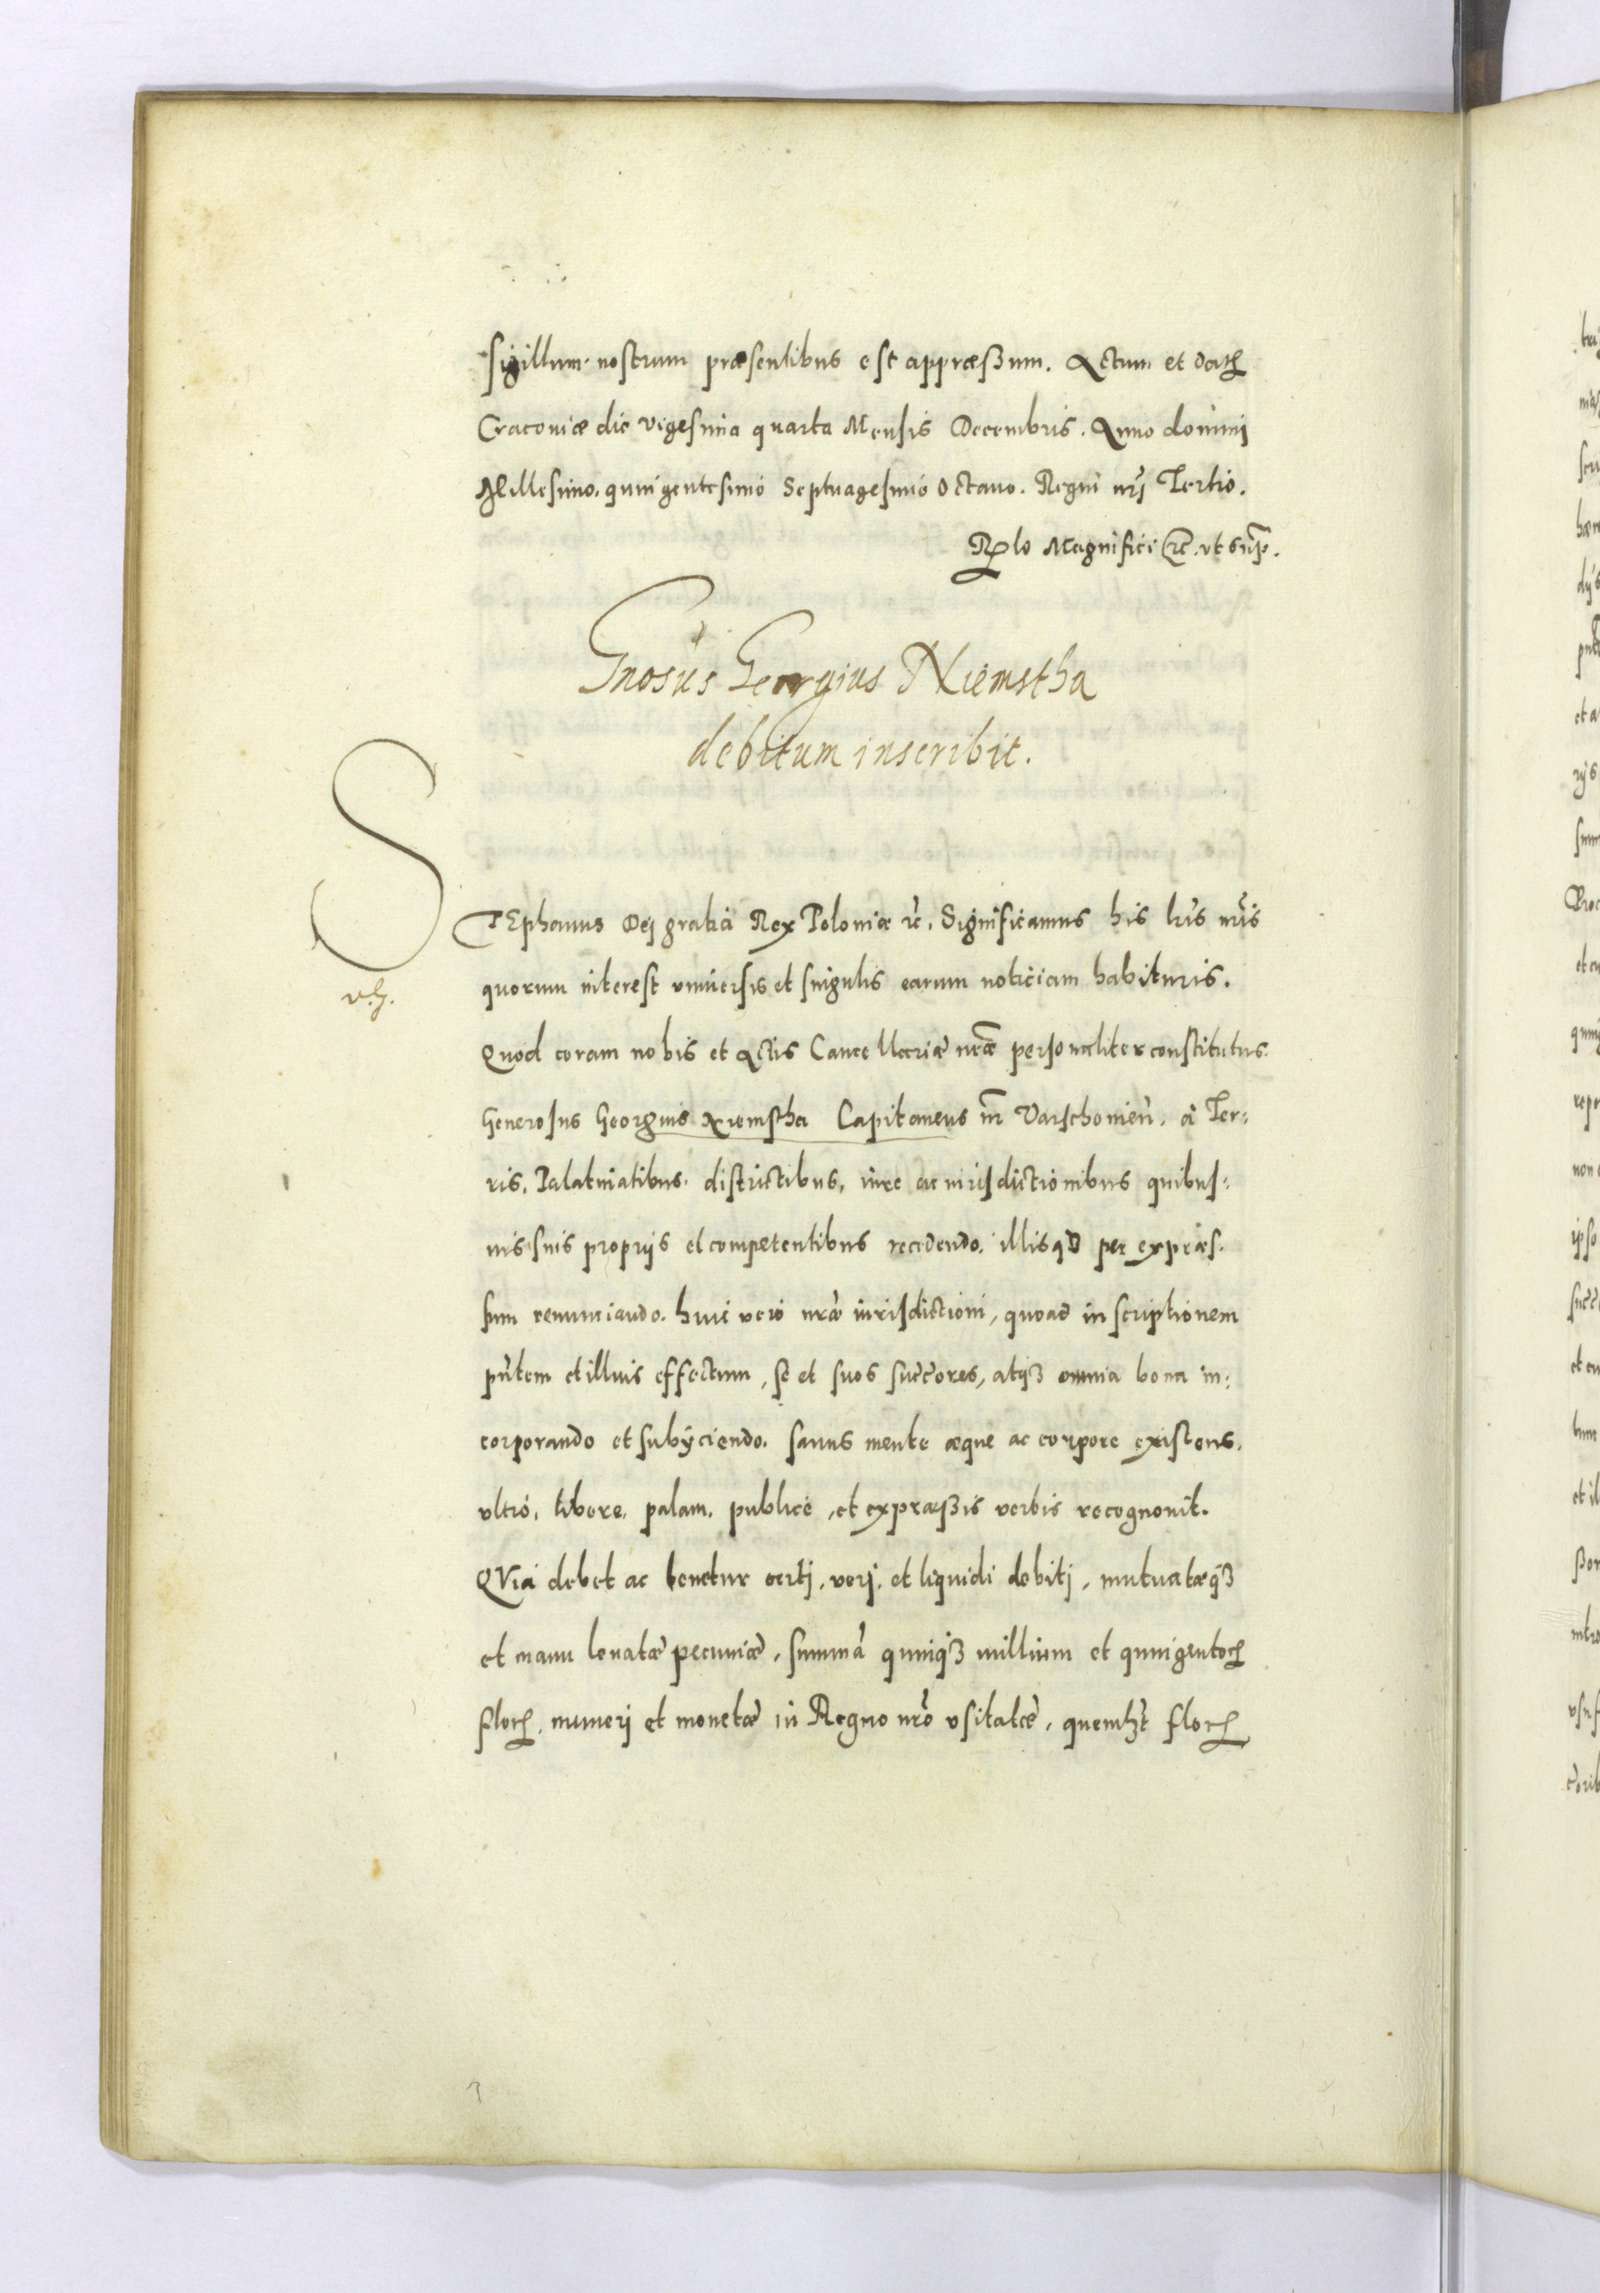 sigillum nostrum præsentibus est appræßum. Actum et datꝝ
Cracoviæ die vigesima quarta Mensis Decembris. Anno domini
Millesimo. quingentesimo Septuagesimo Octavo. Regni nrī Tertio.
Rela Magnifici &c. ut supͣ.
Gnosus Georgius Niemstha
debitum inscribit.
STEphanus Dei gratia Rex Poloniæ &c. Significamus his lrīs nrīs
quorum interest universis et singulis earum noticiam habituris.
Quod coram nobis et Actis Cancellariæ nræ personaliter constitutus
Generosus Georgius Niemstha Capitaneus nr̄ Varschovien̄. à Ter:
ris, Palatinatibus. districtibus, iure ac iurisdictionibus quibus:
vis suis proprijs et competentibus recedendo. illisq3 per expræs:
sum renunciando. huic vero nræ iurisdictioni, quoad inscriptionem
pn̄tem et illius effectum, se et suos succ̄ores, atq3 omnia bona in:
corporando et subÿciendo. sanus mente æque ac corpore existens.
ultró, libere, palam, publicè, et expræßis verbis recognovit.
QVia debet ac tenetur certi, veri, et liquidi debiti, mutuatæq3
et manu levatæ pecuniæ, summā quinq3 millium et quingentoꝝ
floꝝ, numeri et monetæ in Regno nrō usitatæ, quemlꝫt floꝝ